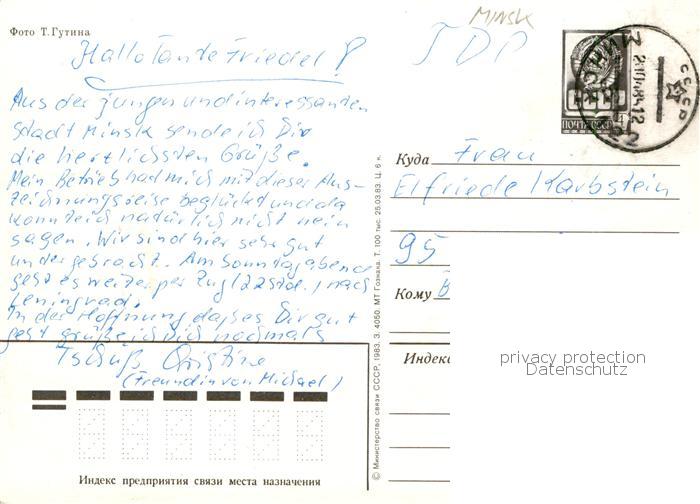 Фото Т.Гутина
MINSK
ГДР
Hallo Tante Friedel!
Aus der jungen und interessanten
Stadt Minsk sende ich Dir
die herzlichsten Grüße.
Mein Betrieb had mich mit dieser Aus-
zeichnungsreise beglückt und da
konnte ich natürlich nicht nein
sagen. Wir sind hier sehr gut
untergebracht. Am Sonntagabend
geht es weiter per Zug (22 Std.) nach
Leningrad.
In der Hoffnung daß es Dir gut
geht grüße ich Dich nochmals
Tschüß Christine
(Freundin von Michael)
ПОЧТА СССР
МИНСК
СССР
Куда Frau
Elfriede Karbstein
95
Кому
Индекс
privacy protection
Datenschutz
© Министерство связи СССР, 1983. З. 4050. МТ Гознака. Т. 100 тыс. 25.03.83. Ц. 6 к.
Индекс предприятия связи места назначения